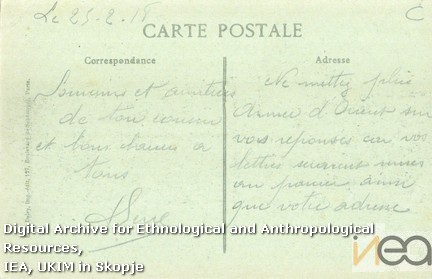 Le 25-2-18
C
CARTE POSTALE
Correspondance
Adresse
et amitiés
de ton cousin
et bons baisers à
tous
Ne mettez plus
Armée d'Orient sur
vos réponses car vos
lettres seraient mises
au panier ainsi
que votre adresse
Digital Archive for Ethnological and Anthropological
Resources,
IEA, UKIM in Skopje
iea